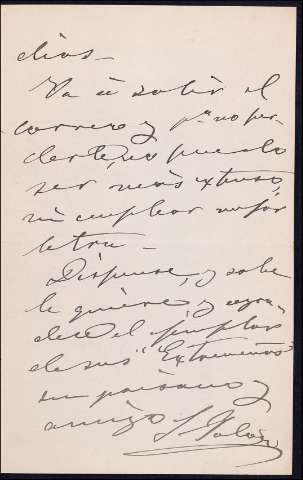 dias—
Va á salir el
correo y pª no per-
derlo, no puedo
ser más extenso,
ni emplear mejor
letra—
Dispense, y sabe
le quiere y agra-
dece el ejemplar
de sus "Extremeños"
su paisano y
amigo